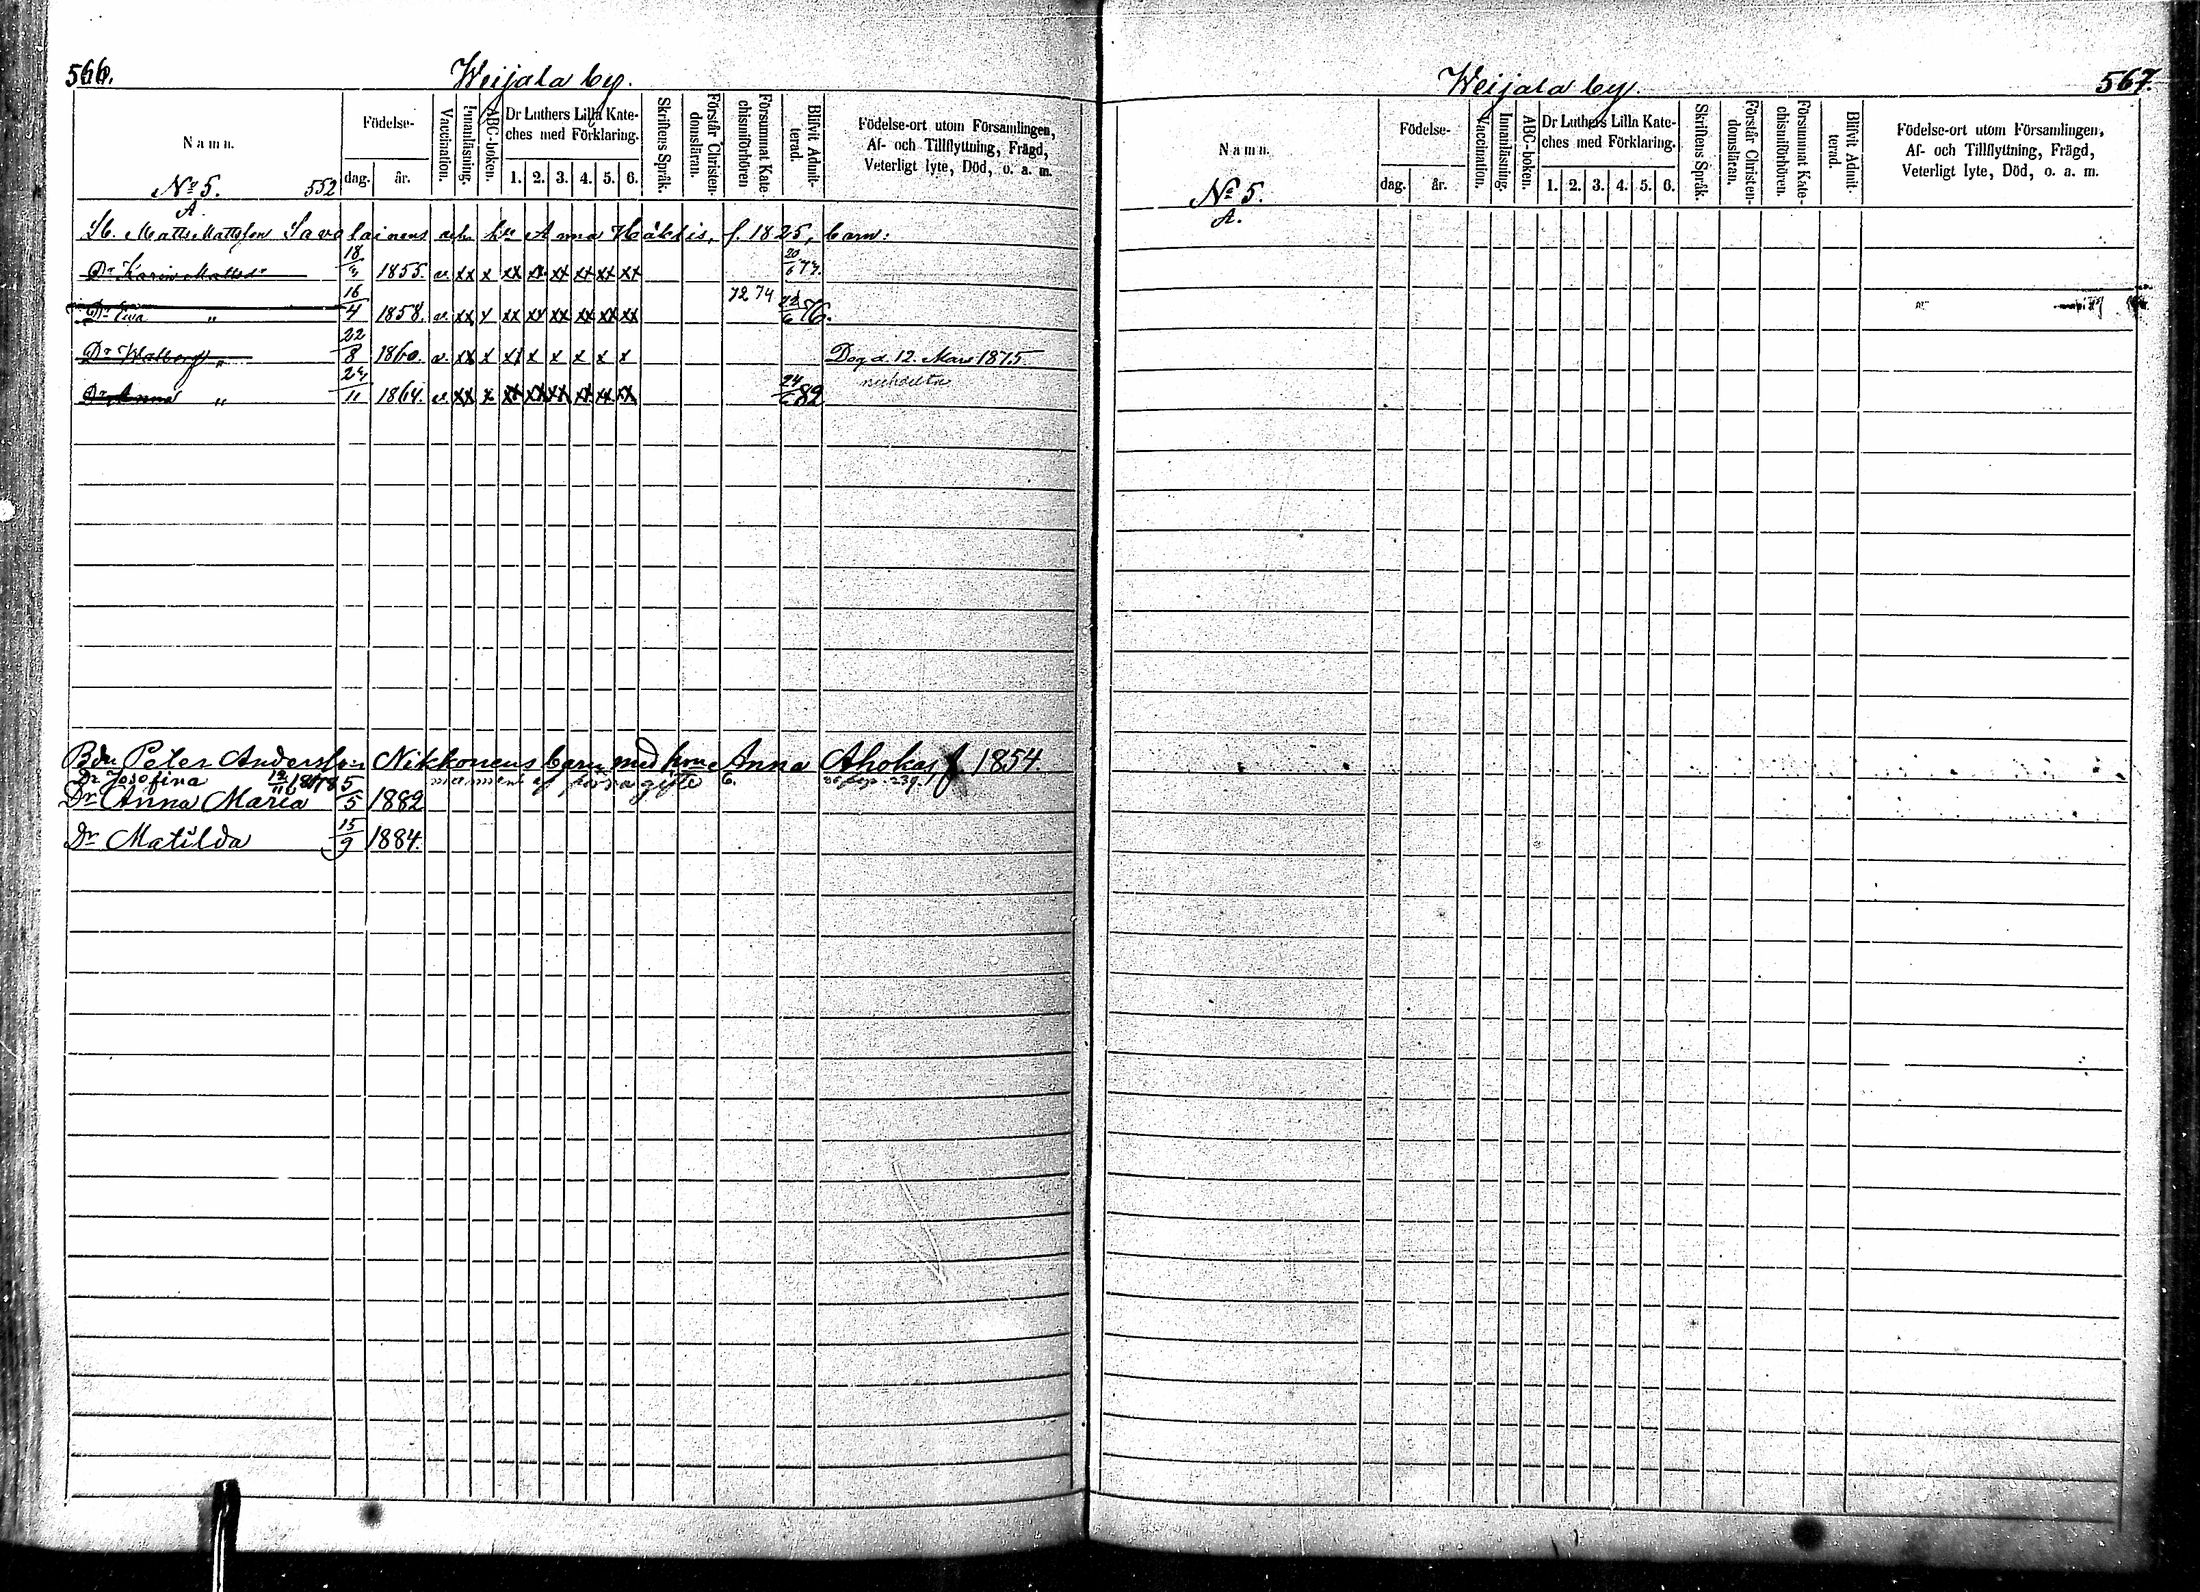 566.
Weijala by.
Namn.
Födelse-
dag.
år.
Vaccination.
Innanläsning.
ABC-boken.
Dr Luthers Lilla Kate-
ches med Förklaring.
1. 2. 3. 4. 5. 6.
Skriftens Språk.
Förstår Christen-
domsläran.
Försummat Kate-
chismiförhören
Blifvit Admit-
terad.
Födelse-ort utom Församlingen,
Af- och Tillflyttning, Frägd,
Veterligt lyte, Död, o. a. m.
No 5. 552
A.
Matts Mattsson Savolainens och Anna f. 1825, barn:
Dr Karin Mattsdr 18 1855. v. xx x xx xx xx xx xx xx 20/6 73.
Dr Eva " 16/4 1858. v. xx x xx xx xx xx xx xx 72 74 76.
Dr Walborg " 22/8 1860. v. xx x xx x x x x x Dog d. 12. Mars 1875
Dr Anna " 11 1864. v. xx x xx xx xx xx xx xx 24 82
Peter Andersson Nikkonens barn med hon Anna Ahokas f 1854.
Dr Josefina af förra gifte
Dr Anna Maria 5 1882
Dr Matilda 15/9 1884.
567.
Weijala by.
Namn.
Födelse-
dag.
år.
Vaccination.
Innanläsning.
ABC-boken.
Dr Luthers Lilla Kate-
ches med Förklaring.
1. 2. 3. 4. 5. 6.
Skriftens Språk.
Förstår Christen-
domsläran.
Försummat Kate-
chismiförhören.
Blifvit Admit-
terad.
Födelse-ort utom Församlingen,
Af- och Tillflyttning, Frägd,
Veterligt lyte, Död, o. a. m.
No 5.
A.